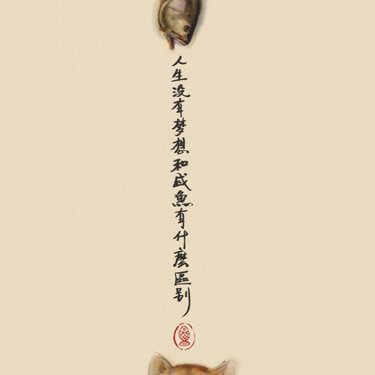 人生没有梦想和咸鱼有什麼區别